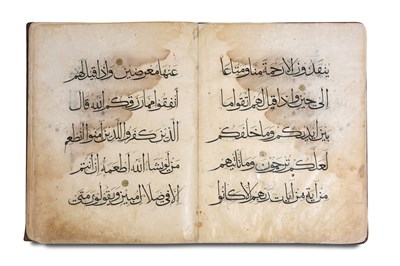 ينقذون الا رحمة منا ومتاعا
الى حين واذا قيل لهم اتقوا ما
بين ايديكم وما خلفكم
لعلكم ترحمون وما تاتيهم
من اية من ايات ربهم الا كانوا
عنها معرضين واذا قيل لهم
انفقوا مما رزقكم الله قال
الذين كفروا للذين امنوا انطعم
من لو يشا الله اطعمه ان انتم
الا فى ضلال مبين ويقولون متى